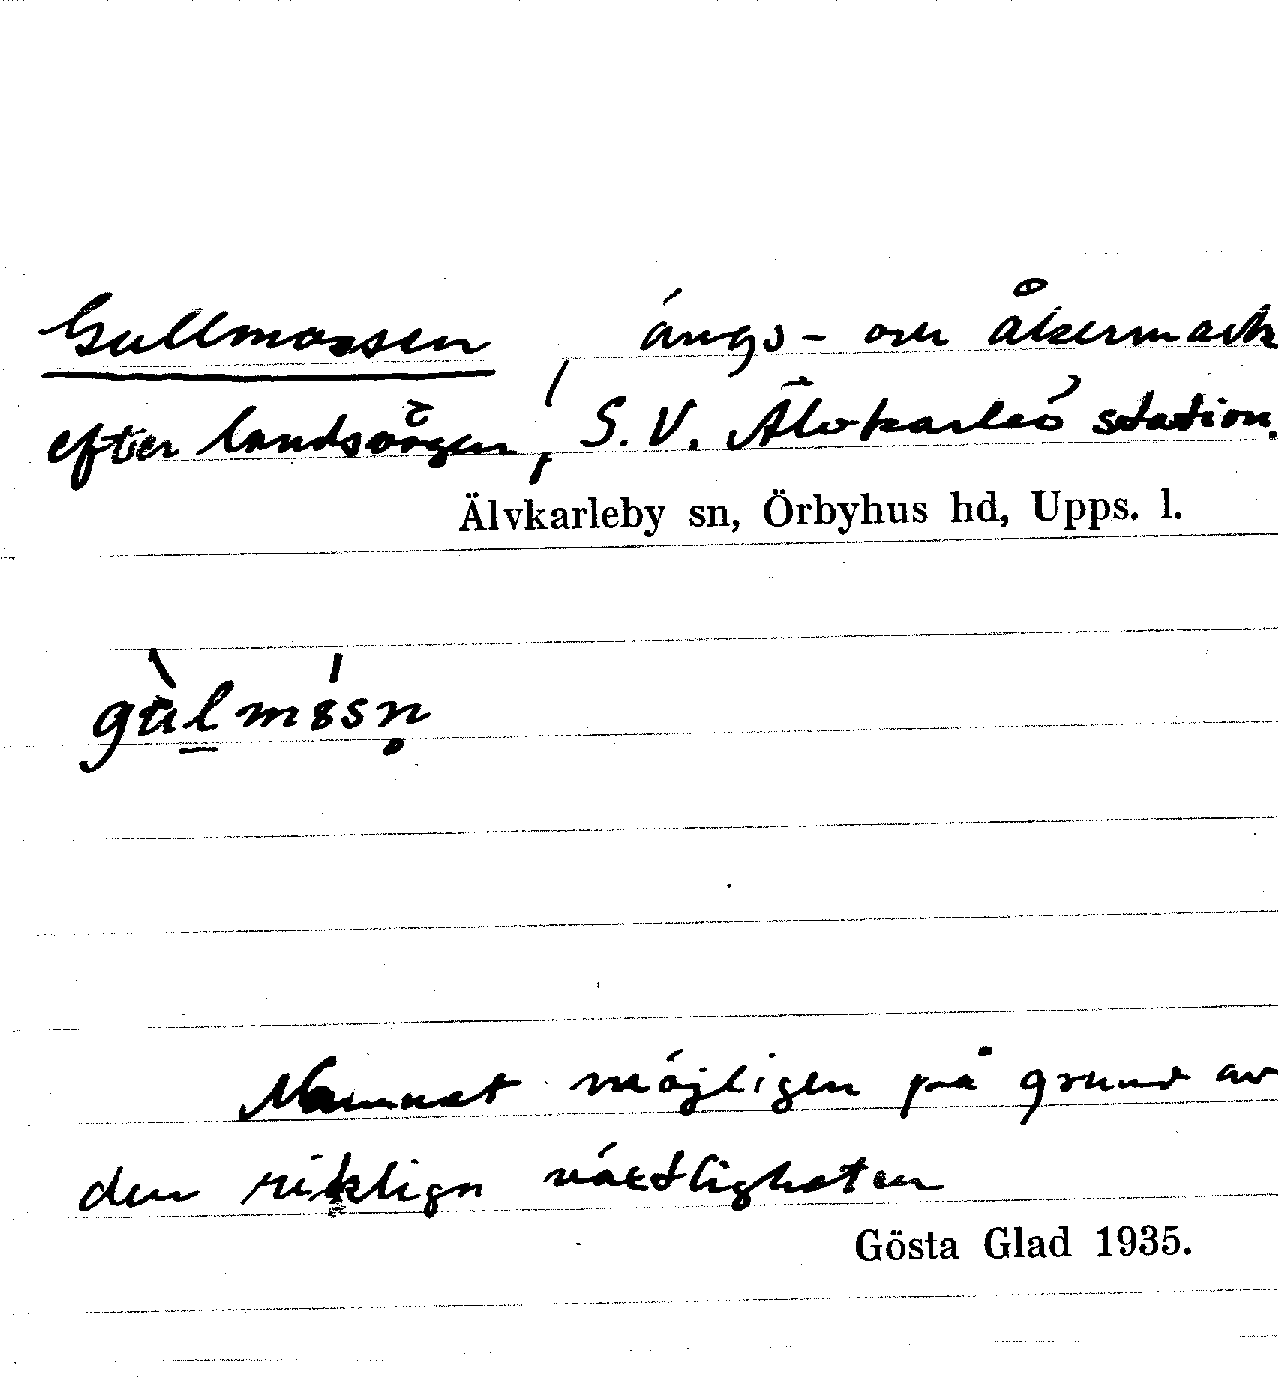 Gullmossen, ängs- och åkermark
efter landsvägen, S.V. Älvkarleö station.
Älvkarleby sn, Örbyhus hd, Upps. l.
gùlmósn̥
Namnet möjligen på grund av
den rikliga växtligheten
Gösta Glad 1935.